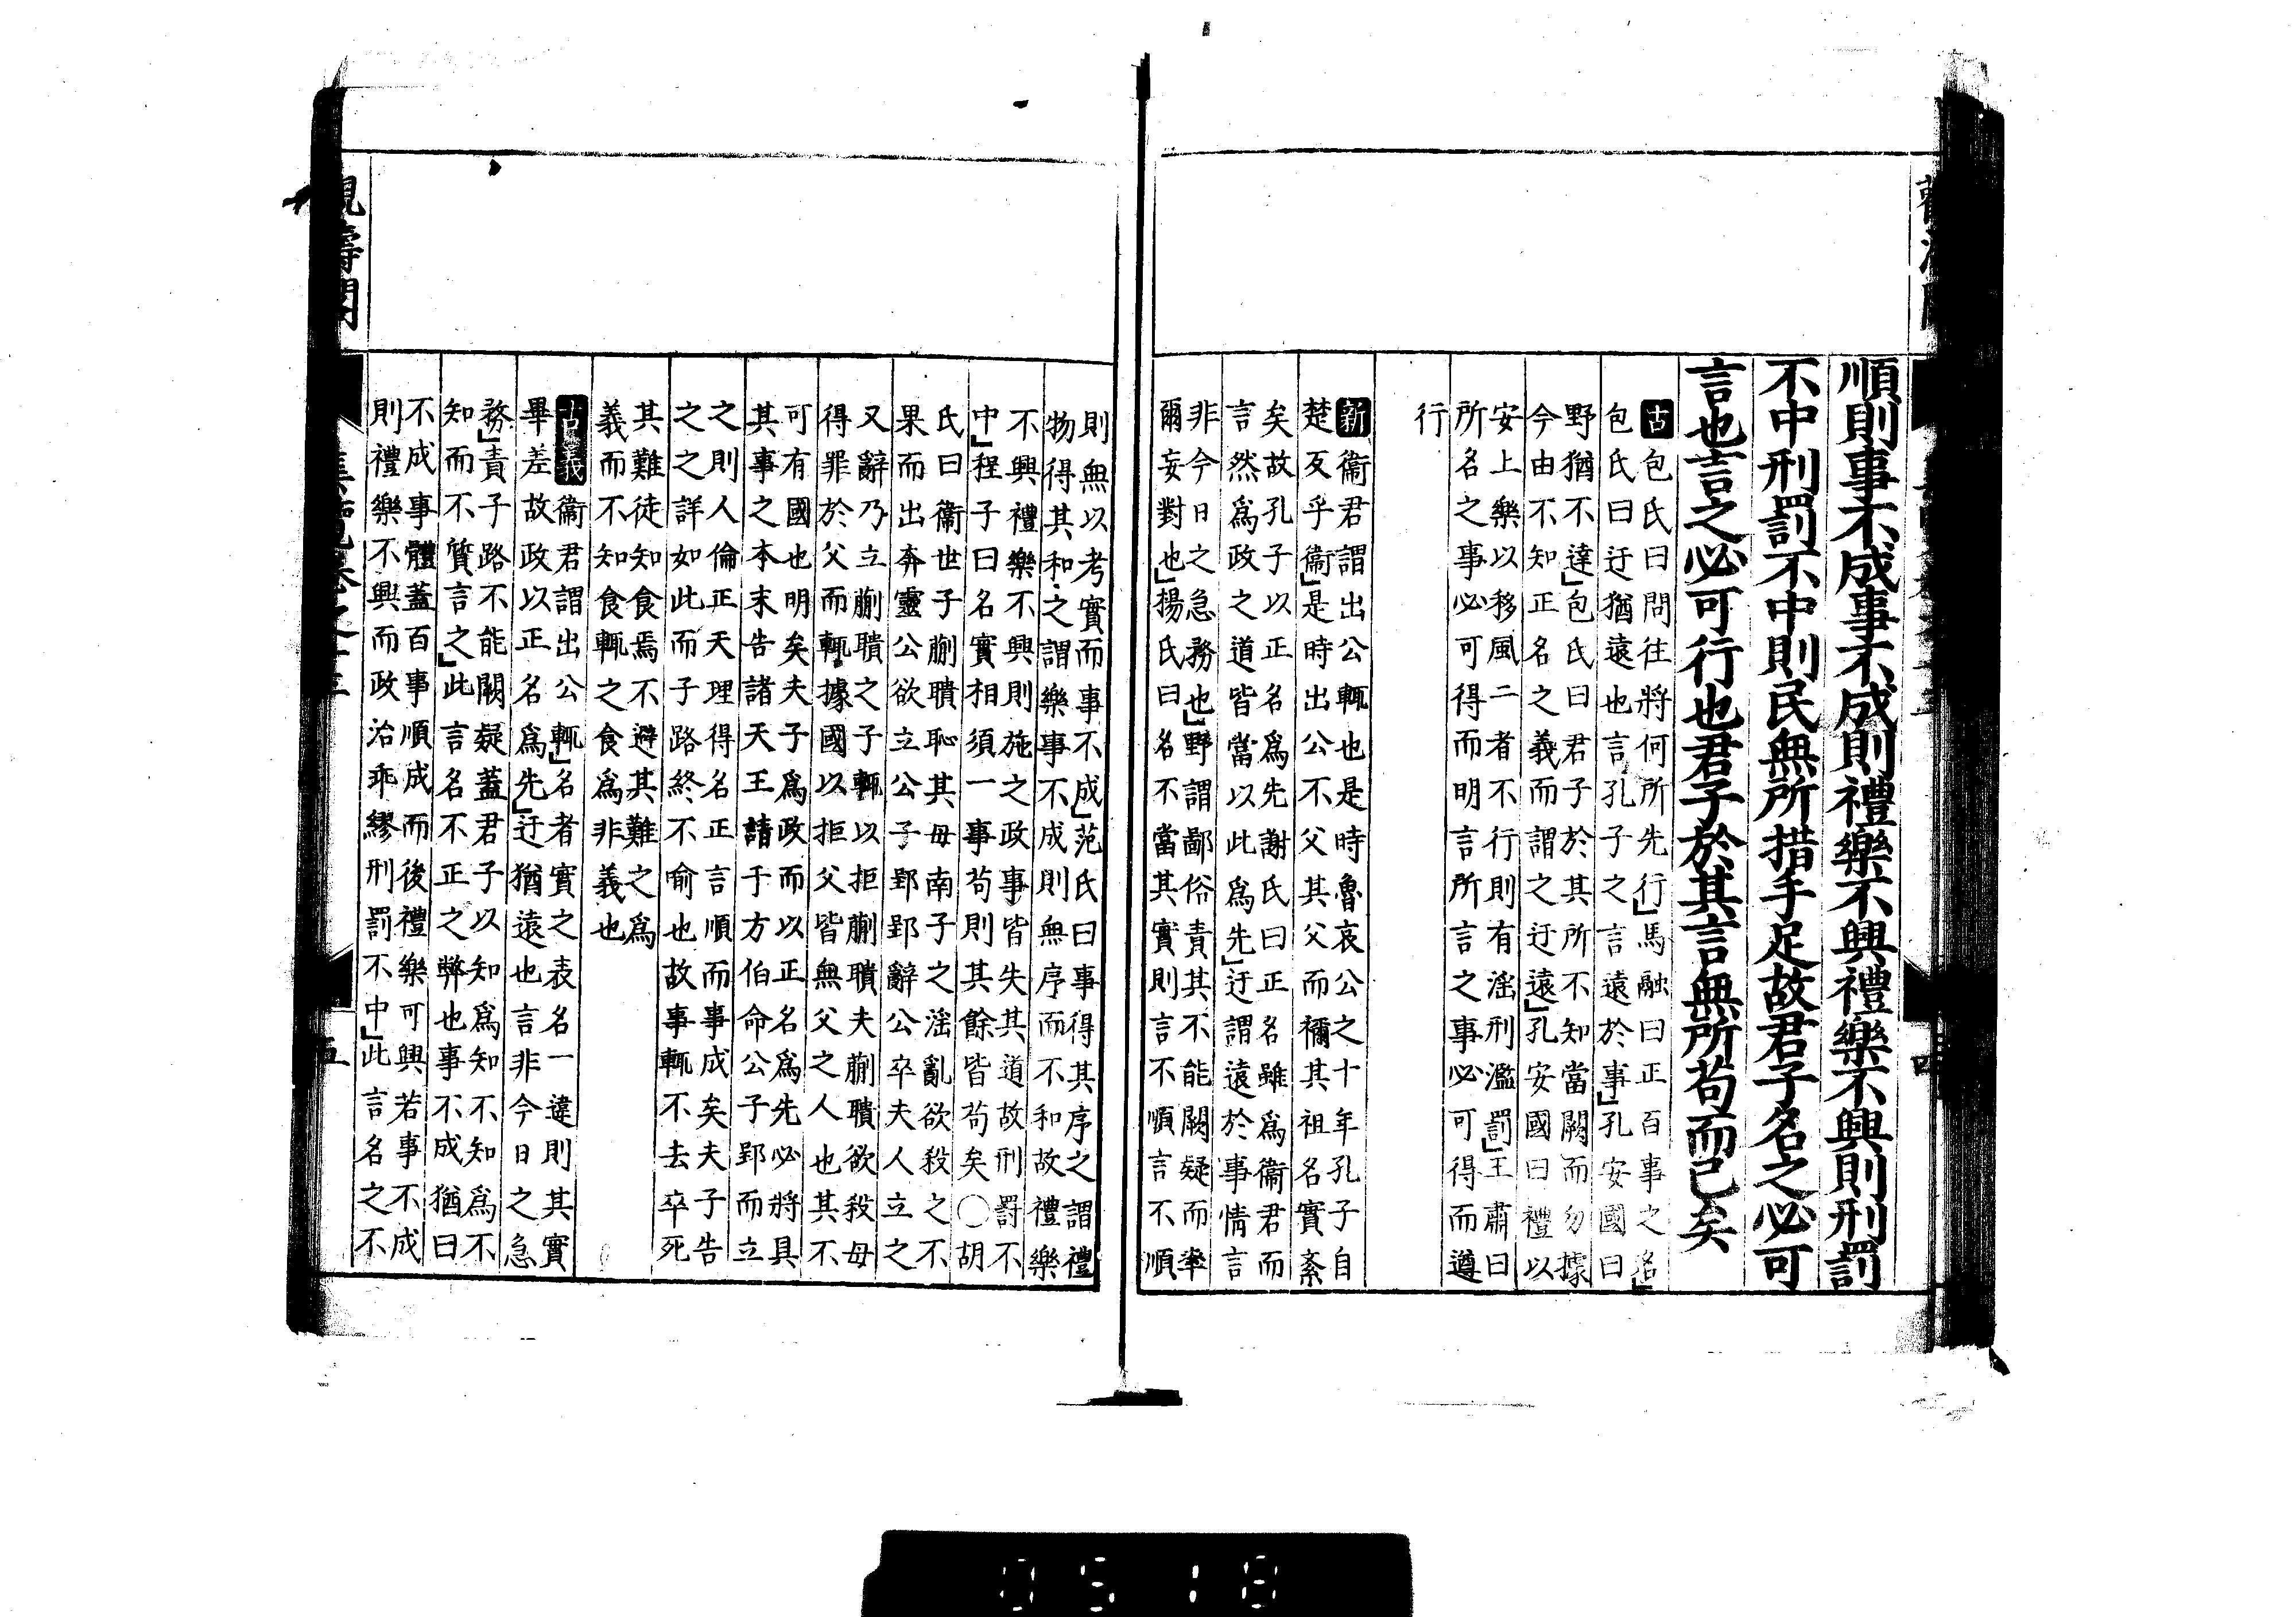 順則事不成事不成則禮樂不興禮樂不興則刑罰
不中刑罰不中則民無所措手足故君子名之必可
言也言之必可行也君子於其言無所苟而已矣
古包氏曰問往將何所先行」馬融曰正百事之名」
包氏曰迂猶遠也言孔子之言遠於事」孔安國曰
野猶不達」包氏曰君子於其所不知當闕而勿據
今由不知正名之義而謂之迂遠」孔安國曰禮以
安上樂以移風二者不行則有淫刑濫罰」王肅曰
所名之事必可得而明言所言之事必可得而遵
行
新衞君謂出公輒也是時魯哀公之十年孔子自
楚反乎衞」是時出公不父其父而禰其祖名實紊
矣故孔子以正名爲先謝氏曰正名雖爲衞君而
言然爲政之道皆當以此爲先」迂謂遠於事情言
非今日之急務也」野謂鄙俗責其不能闕疑而率
爾妄對也」揚氏曰名不當其實則言不順言不順
則無以考實而事不成」范氏曰事得其序之謂禮
物得其和之謂樂事不成則無序而不和故禮樂
不興禮樂不興則施之政事皆失其道故刑罰不
中」程子曰名實相須一事苟則其餘皆苟矣○胡
氏曰衞世子蒯聵恥其母南子之淫亂欲殺之不
果而出奔靈公欲立公子郢郢辭公卒夫人立之
又辭乃立蒯聵之子輒以拒蒯聵夫蒯聵欲殺母
得罪於父而輒據國以拒父皆無父之人也其不
可有國也明矣夫子爲政而以正名爲先必將具
其事之本末告諸天王請于方伯命公子郢而立
之則人倫正天理得名正言順而事成矣夫子告
之之詳如此而子路終不喻也故事輒不去卒死
其難徒知食焉不避其難之爲
義而不知食輒之食爲非義也
古義衞君謂出公輒」名者實之表名一違則其實
畢差故政以正名爲先」迂猶遠也言非今日之急
務」責子路不能闕疑蓋君子以知爲知不知爲不
知而不質言之」此言名不正之弊也事不成猶曰
不成事體蓋百事順成而後禮樂可興若事不成
則禮樂不興而政治乖繆刑罰不中」此言名之不
五
0518